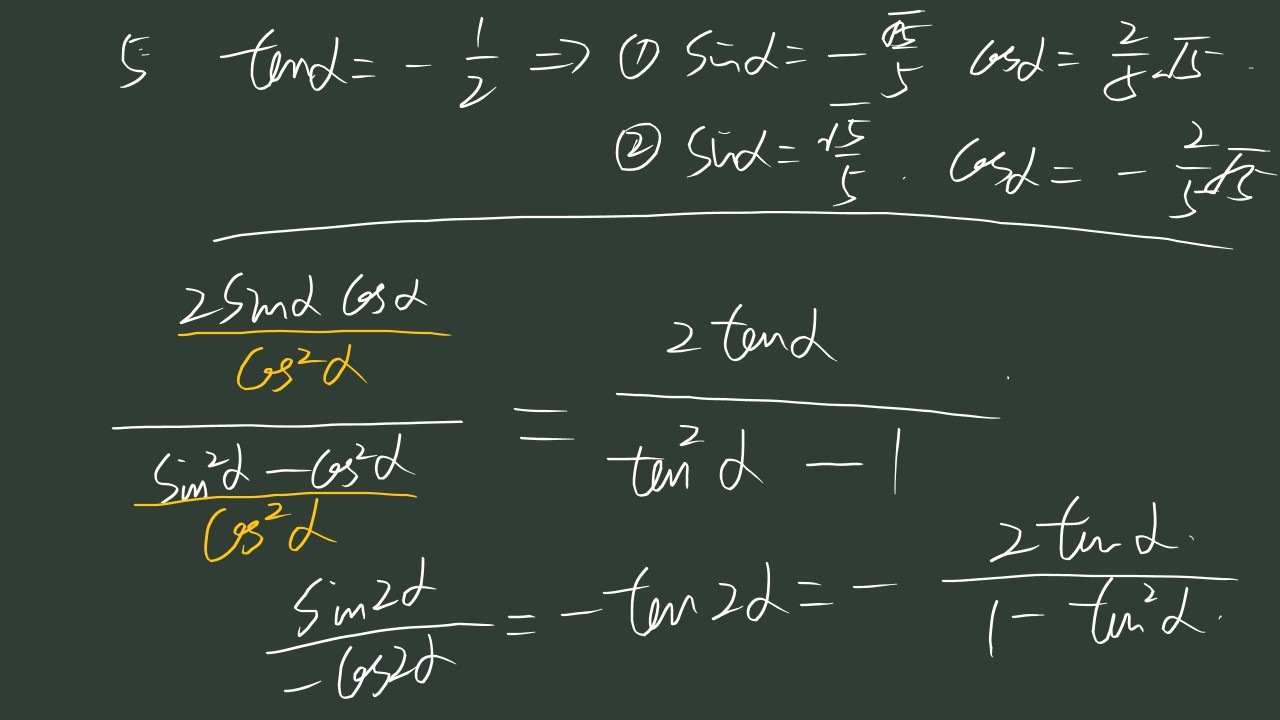 5 tanα = - 1/2 ⇒ ① sinα = - √5/5 cosα = 2/5 √5
② sinα = √5/5 . cosα = - 2/5 √5
2sinα cosα / cos²α = 2 tanα
sin²α - cos²α / cos²α tan²α - 1
sin2α / -cos2α = - tan2α = - 2tanα / 1 - tan²α